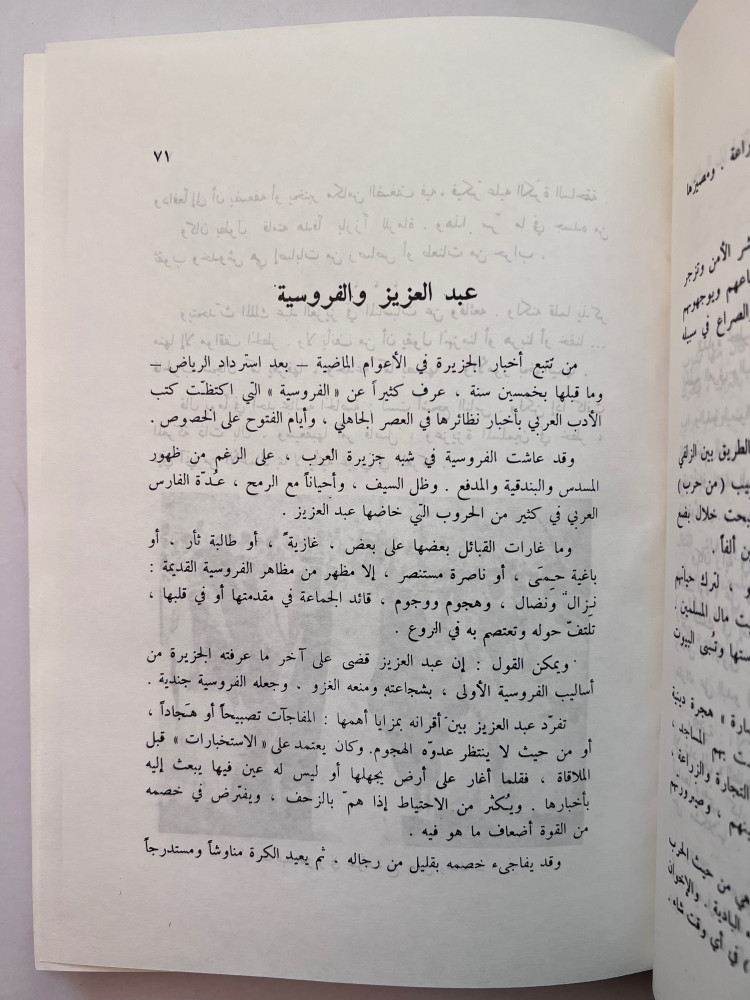 ٧١
عبد العزيز والفروسية
من تتبع أخبار الجزيرة في الأعوام الماضية – بعد استرداد الرياض –
وما قبلها بخمسين سنة ، عرف كثيراً عن « الفروسية » التي اكتظّت كتب
الأدب العربي بأخبار نظائرها في العصر الجاهلي ، وأيام الفتوح على الخصوص .
وقد عاشت الفروسية في شبه جزيرة العرب ، على الرغم من ظهور
المسدس والبندقية والمدفع . وظل السيف ، وأحياناً مع الرمح ، عُدّة الفارس
العربي في كثير من الحروب التي خاضها عبد العزيز .
وما غارات القبائل بعضها على بعض ، غازيةً ، أو طالبة ثأر . أو
باغية حِمىً ، أو ناصرة مستنصر ، إلا مظهر من مظاهر الفروسية القديمة :
نزالٌ ونضال ، وهجوم ووجوم ، قائد الجماعة في مقدمتها أو في قلبها ،
تلتفّ حوله وتعتصم به في الروع .
ويمكن القول : إن عبد العزيز قضى على آخر ما عرفته الجزيرة من
أساليب الفروسية الأولى ، بشجاعته ومنعه الغزو . وجعله الفروسية جندية .
تفرّد عبد العزيز بين أقرانه بمزايا أهمها : المفاجآت تصبيحاً أو هَجاداً ،
أو من حيث لا ينتظر عدوّه الهجوم. وكان يعتمد على « الاستخبارات » قبل
الملاقاة ، فقلما أغار على أرض يجهلها أو ليس له عين فيها يبعث إليه
بأخبارها . ويُكثر من الاحتياط إذا همّ بالزحف ، ويفترض في خصمه
من القوة أضعاف ما هو فيه .
وقد يفاجىء خصمه بقليل من رجاله . ثم يعيد الكرة مناوشاً ومستدرجاً
ومصيرها
شر الأمن وتزجر
ويوجهوبهم
الصراع في سيله
الطريق بين الزلفي
(من حرب)
بحت خلال بضع
ين ألفاً .
و ، لترك حياتهم
ت مال المسلمين .
وتُبنى البيوت
هجرة دينية
بهم المساجد ،
التجارة والزراعة ،
من حيث الحرب
البادية . والإخوان
في أي وقت شاء .